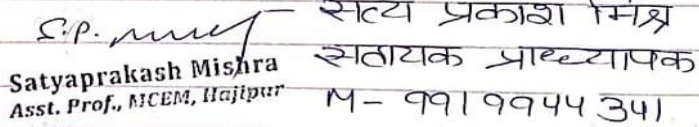 S.P. सत्य प्रकाश मिश्र
Satyaprakash Mishra सहायक प्राध्यापक
Asst. Prof., MCEM, Hajipur M - 9919944341